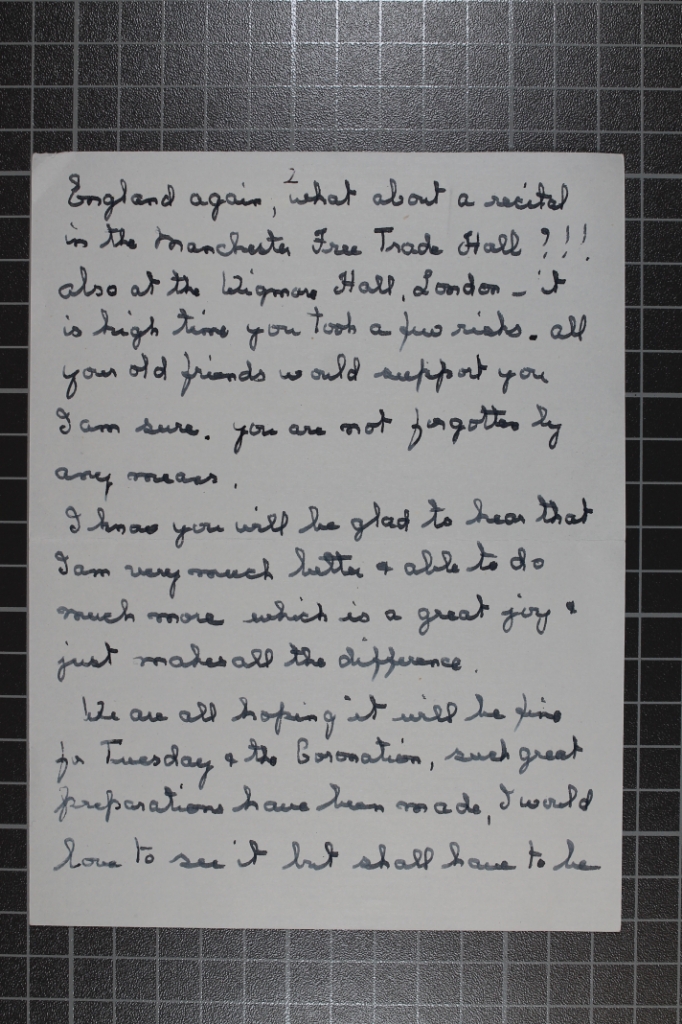 2
England again, what about a recital
in the Manchester Free Trade Hall ?!!!
also at the Wigmore Hall, London – it
is high time you took a few risks. all
your old friends would support you
I am sure. you are not forgotten by
any means.
I know you will be glad to hear that
I am very much better & able to do
much more which is a great joy &
just makes all the difference.
We are all hoping it will be fine
for Tuesday & the Coronation, such great
preparations have been made, I would
love to see it but shall have to be